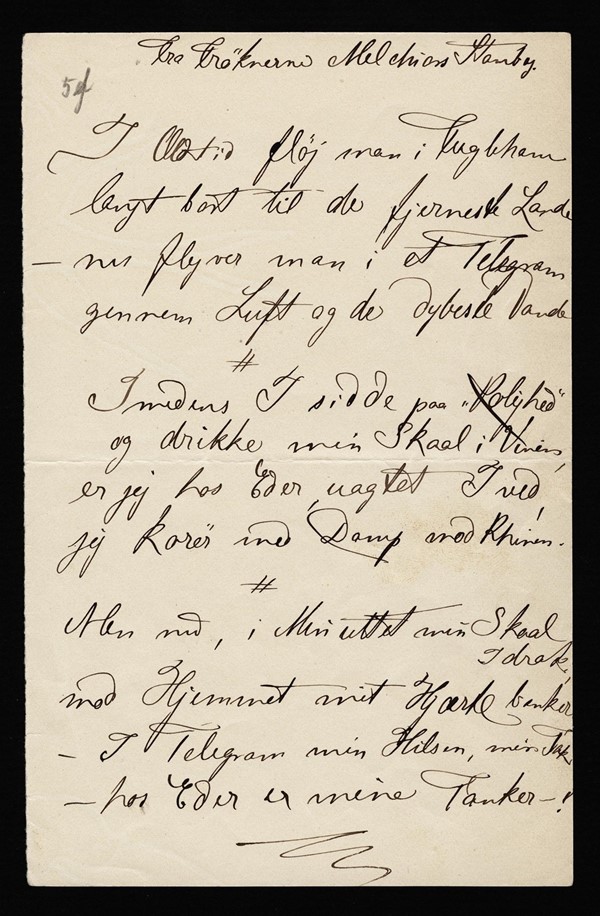 Fra Fröknerne Melchiors Stambog.
I Oldtid fløj man i Fugleham
langt bort til de fjerneste Lande
— nu flyver man i et Telegram
gennem Luft og de dybeste Vande
#
Imedens I sidde paa „Rolighed"
og drikke min Skaal i Vinen,
er jeg hos Eder, uagtet I ved,
jeg kører med Damp mod Rhinen.
#
Men nu, i Minuttet min Skaal
I drak,
mod Hjemmet mit Hjerte banker
— I Telegram min Hilsen, min Tak,
— hos Eder er mine Tanker —!